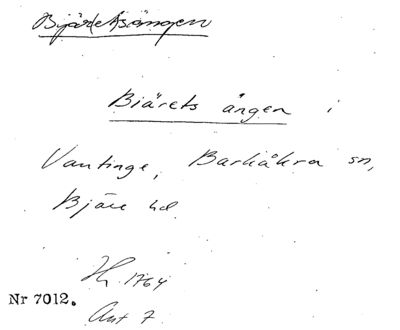 Bjäretsängen
Biärets ängen i
Vantinge, Barkåkra sn,
Bjäre hd.
Hr 1764
Nr 7012.
Ant 7